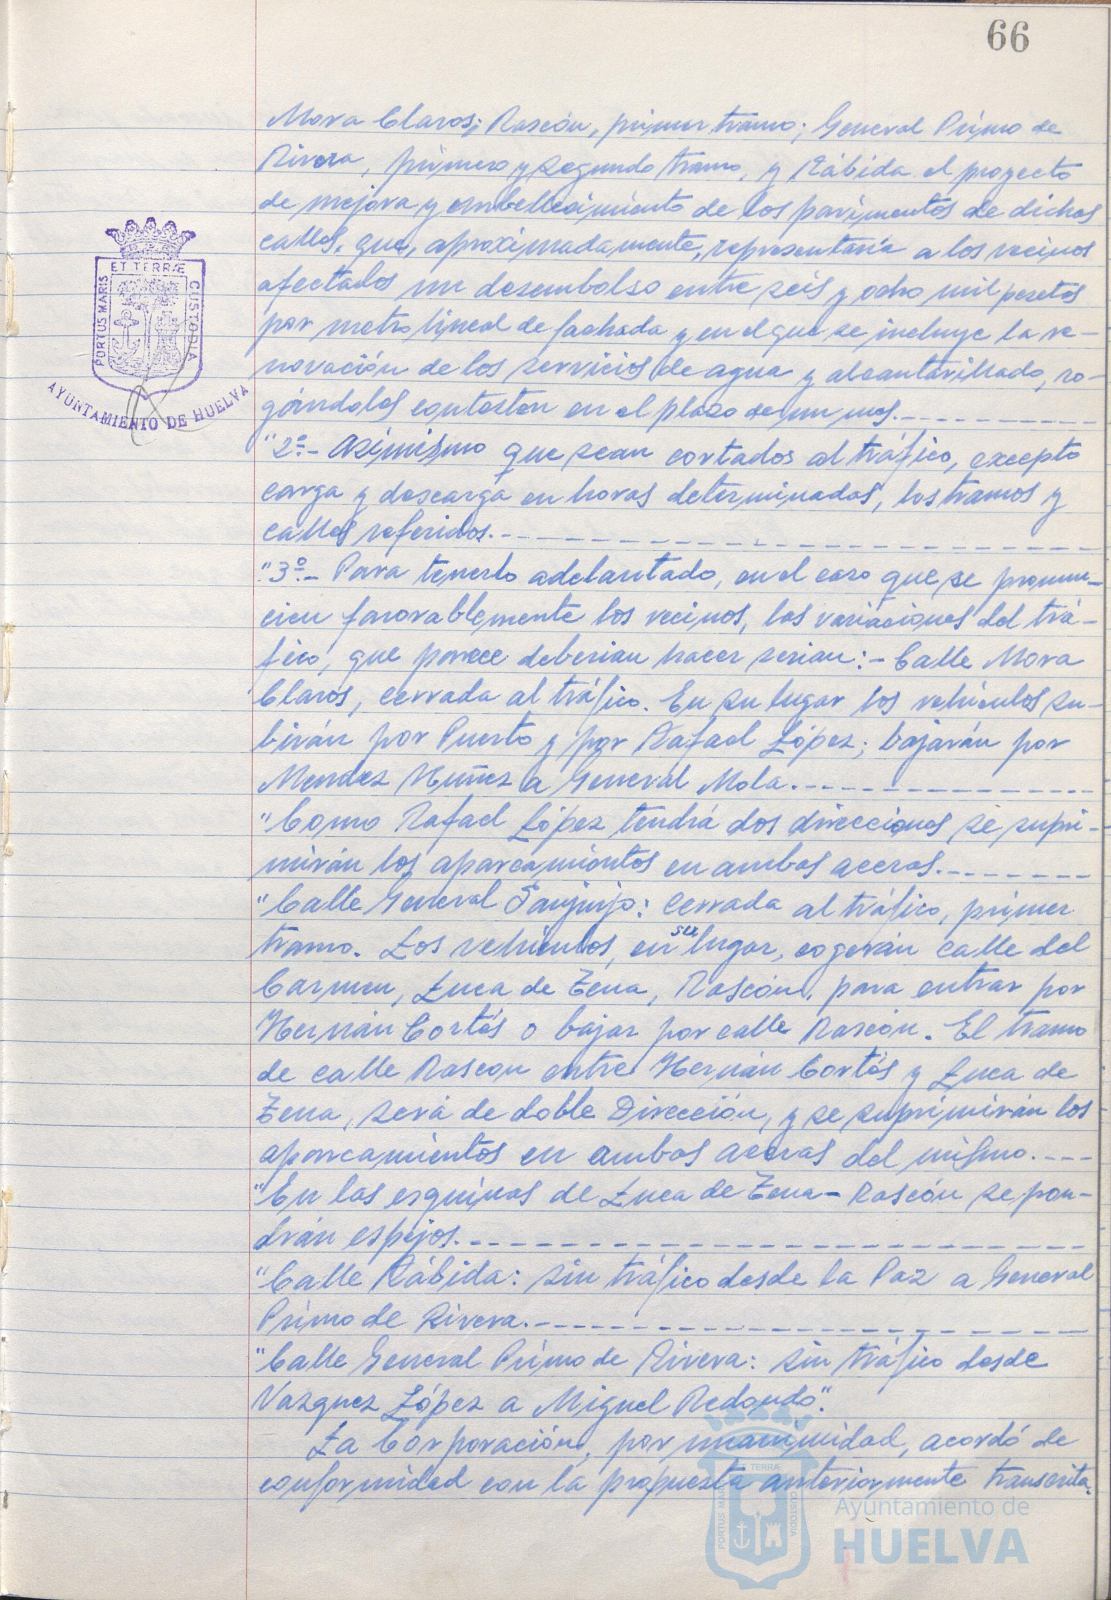 66
Mora Claros; Rascón, primer tramo; General Primo de
Rivera, primero y segundo tramo, y Rábida el proyecto
de mejora y embellecimiento de los pavimentos de dichas
calles, que, aproximadamente, representaría a los vecinos
afectados un desembolso entre seis y ocho mil pesetas
por metro lineal de fachada y en el que se incluye la re-
novación de los servicios de agua y alcantarillado, ro-
gándoles contesten en el plazo de un mes.
"2º.- Asimismo que sean cortados al tráfico, excepto
carga y descarga en horas determinadas, los tramos y
calles referidos.
"3º.- Para tenerlo adelantado, en el caso que se pronun-
cien favorablemente los vecinos, las variaciones del trá-
fico, que parece deberian hacer serian:- Calle Mora
Claros, cerrada al tráfico. En su lugar los vehículos su-
birán por Puerto y por Rafael López; bajarán por
Mendez Nuñez a General Mola.
"Como Rafael López tendrá dos direcciones se supri-
mirán los aparcamientos en ambas aceras.
"Calle General Sanjurjo: Cerrada al tráfico, primer
tramo. Los vehículos, en su lugar, cogerán calle del
Carmen, Luca de Tena, Rascón, para entrar por
Hernán Cortés o bajar por calle Rascón. El tramo
de calle Rascon entre Hernán Cortés y Luca de
Tena, será de doble Dirección, y se suprimirán los
aparcamientos en ambas aceras del mismo.
"En las esquinas de Luca de Tena - Rascón se pon-
drán espejos.
"Calle Rábida: sin tráfico desde la Paz a General
Primo de Rivera.
"Calle General Primo de Rivera: sin tráfico desde
Vazquez López a Miguel Redondo".
La Corporación, por unanimidad, acordó de
conformidad con la propuesta anteriormente transcrita.
PORTUS MARIS
ET TERRÆ
CUSTODIA
AYUNTAMIENTO DE HUELVA
PORTUS MARIS
ET TERRÆ
CUSTODIA
Ayuntamiento de
HUELVA